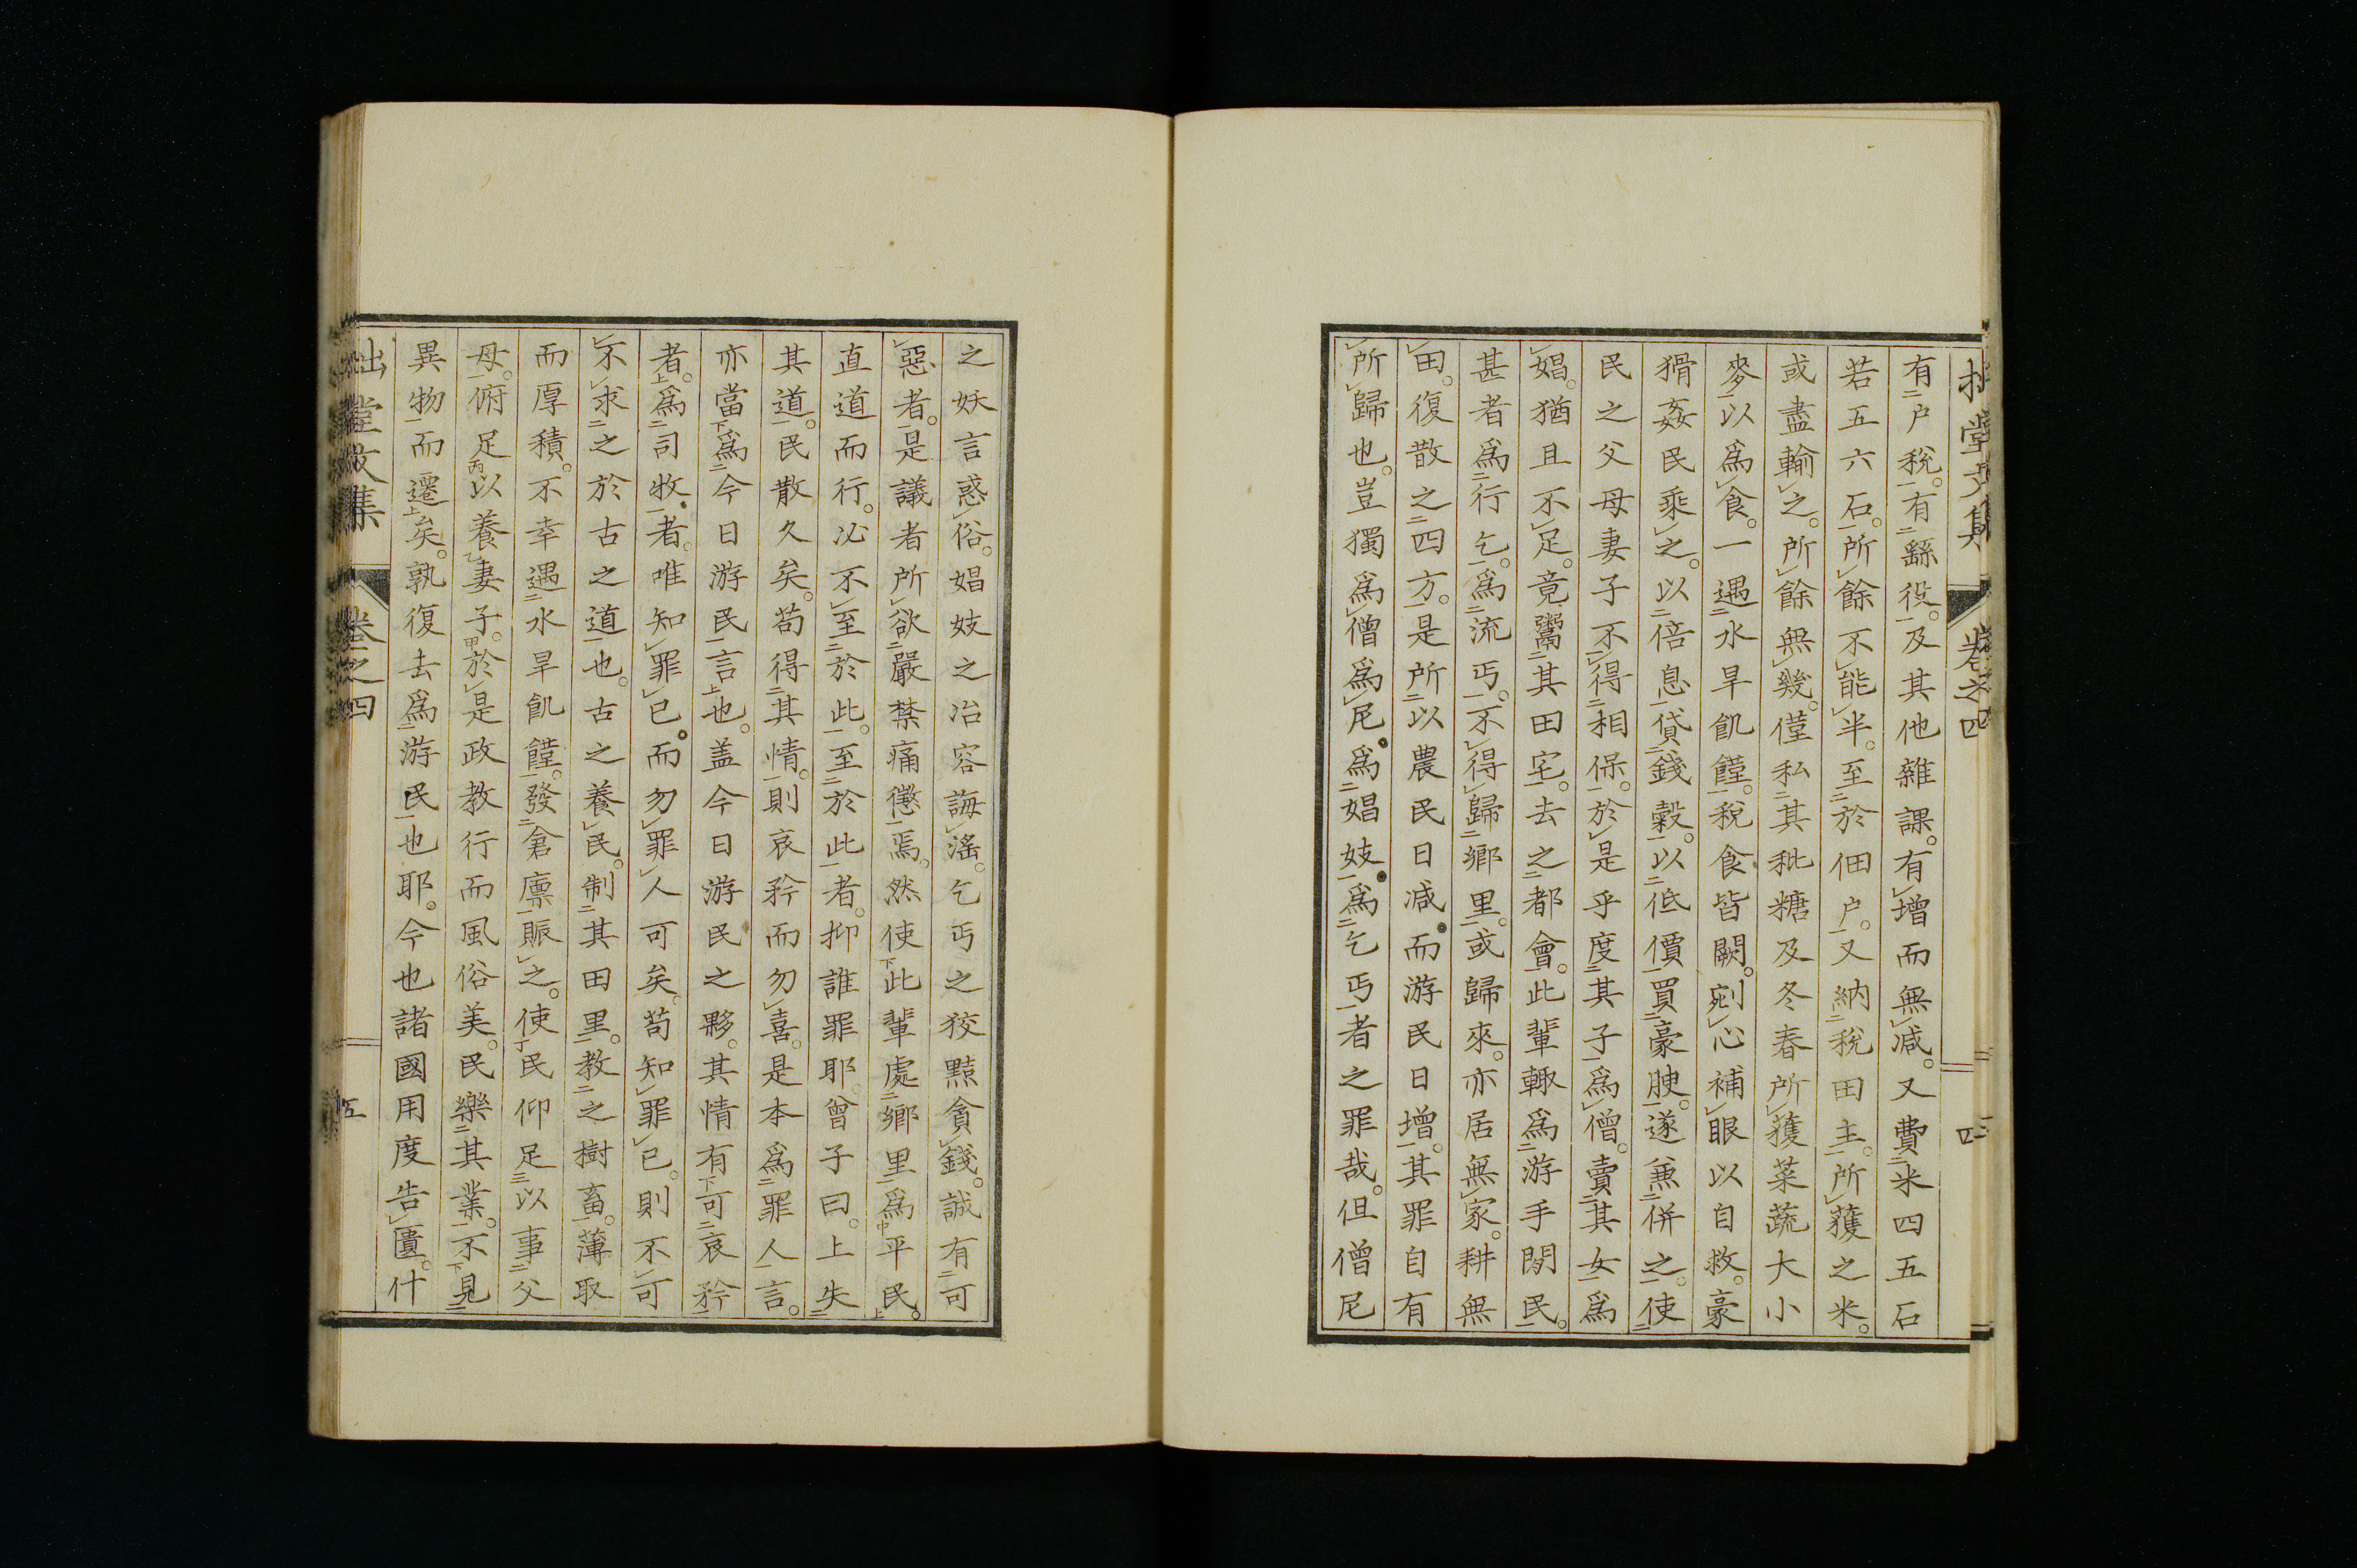 拙堂文集 卷之四 四
有戶稅。有繇役。及其他雜課。有增而無減。又費米四五石
若五六石。所餘不能半。至於佃戶。又納稅田主。所獲之米。
或盡輸之。所餘無幾。僅私其秕糖及冬春所獲菜蔬大小
麥以爲食。一遇水旱飢饉。稅食皆闕。剜心補眼以自救。豪
猾姦民乘之。以倍息貸錢穀。以低價買豪腴。遂兼併之。使
民之父母妻子不得相保。於是乎度其子爲僧。賣其女爲
娼。猶且不足。竟鬻其田宅。去之都會。此輩輙爲游手閒民。
甚者爲行乞。爲流丐。不得歸鄉里。或歸來。亦居無家。耕無
田。復散之四方。是所以農民日減。而游民日增。其罪自有
所歸也。豈獨爲僧爲尼。爲娼妓。爲乞丐者之罪哉。但僧尼
之妖言惑俗。娼妓之冶容誨滛。乞丐之狡黠貪錢。誠有可
惡者。是議者所欲嚴禁痛懲焉。然使此輩處鄉里爲平民。
直道而行。必不至於此。至於此者。抑誰罪耶。曾子曰。上失
其道。民散久矣。苟得其情。則哀矜而勿喜。是本爲罪人言。
亦當爲今日游民言也。盖今日游民之夥。其情有可哀矜
者。爲司牧者。唯知罪已。而勿罪人可矣。苟知罪已。則不可
不求之於古之道也。古之養民。制其田里。教之樹畜。薄取
而厚積。不幸遇水旱飢饉。發倉廪賑之。使民仰足以事父
母。俯足以養妻子。於是政教行而風俗美。民樂其業。不見
異物而遷矣。孰復去爲游民也耶。今也諸國用度告匱。什
拙堂文集 卷之四 五